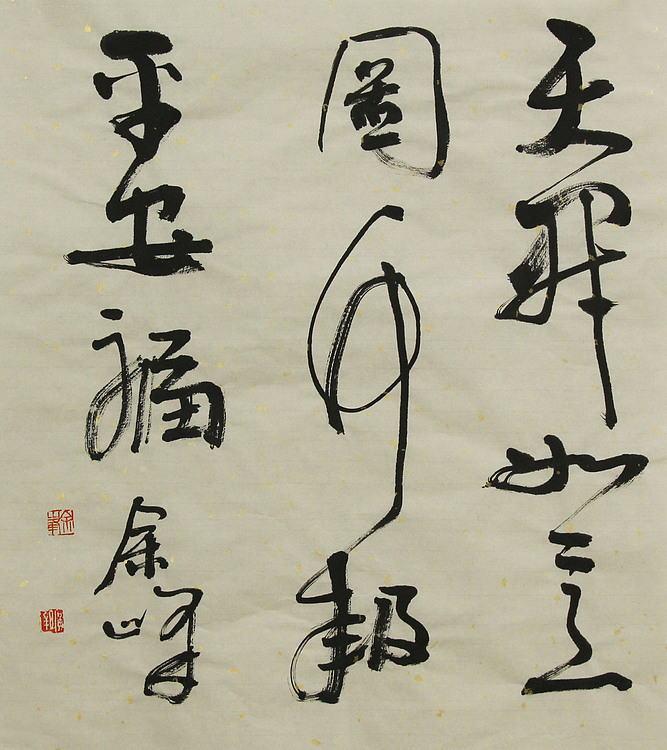 天开如意
图竹报
平安福
余峰